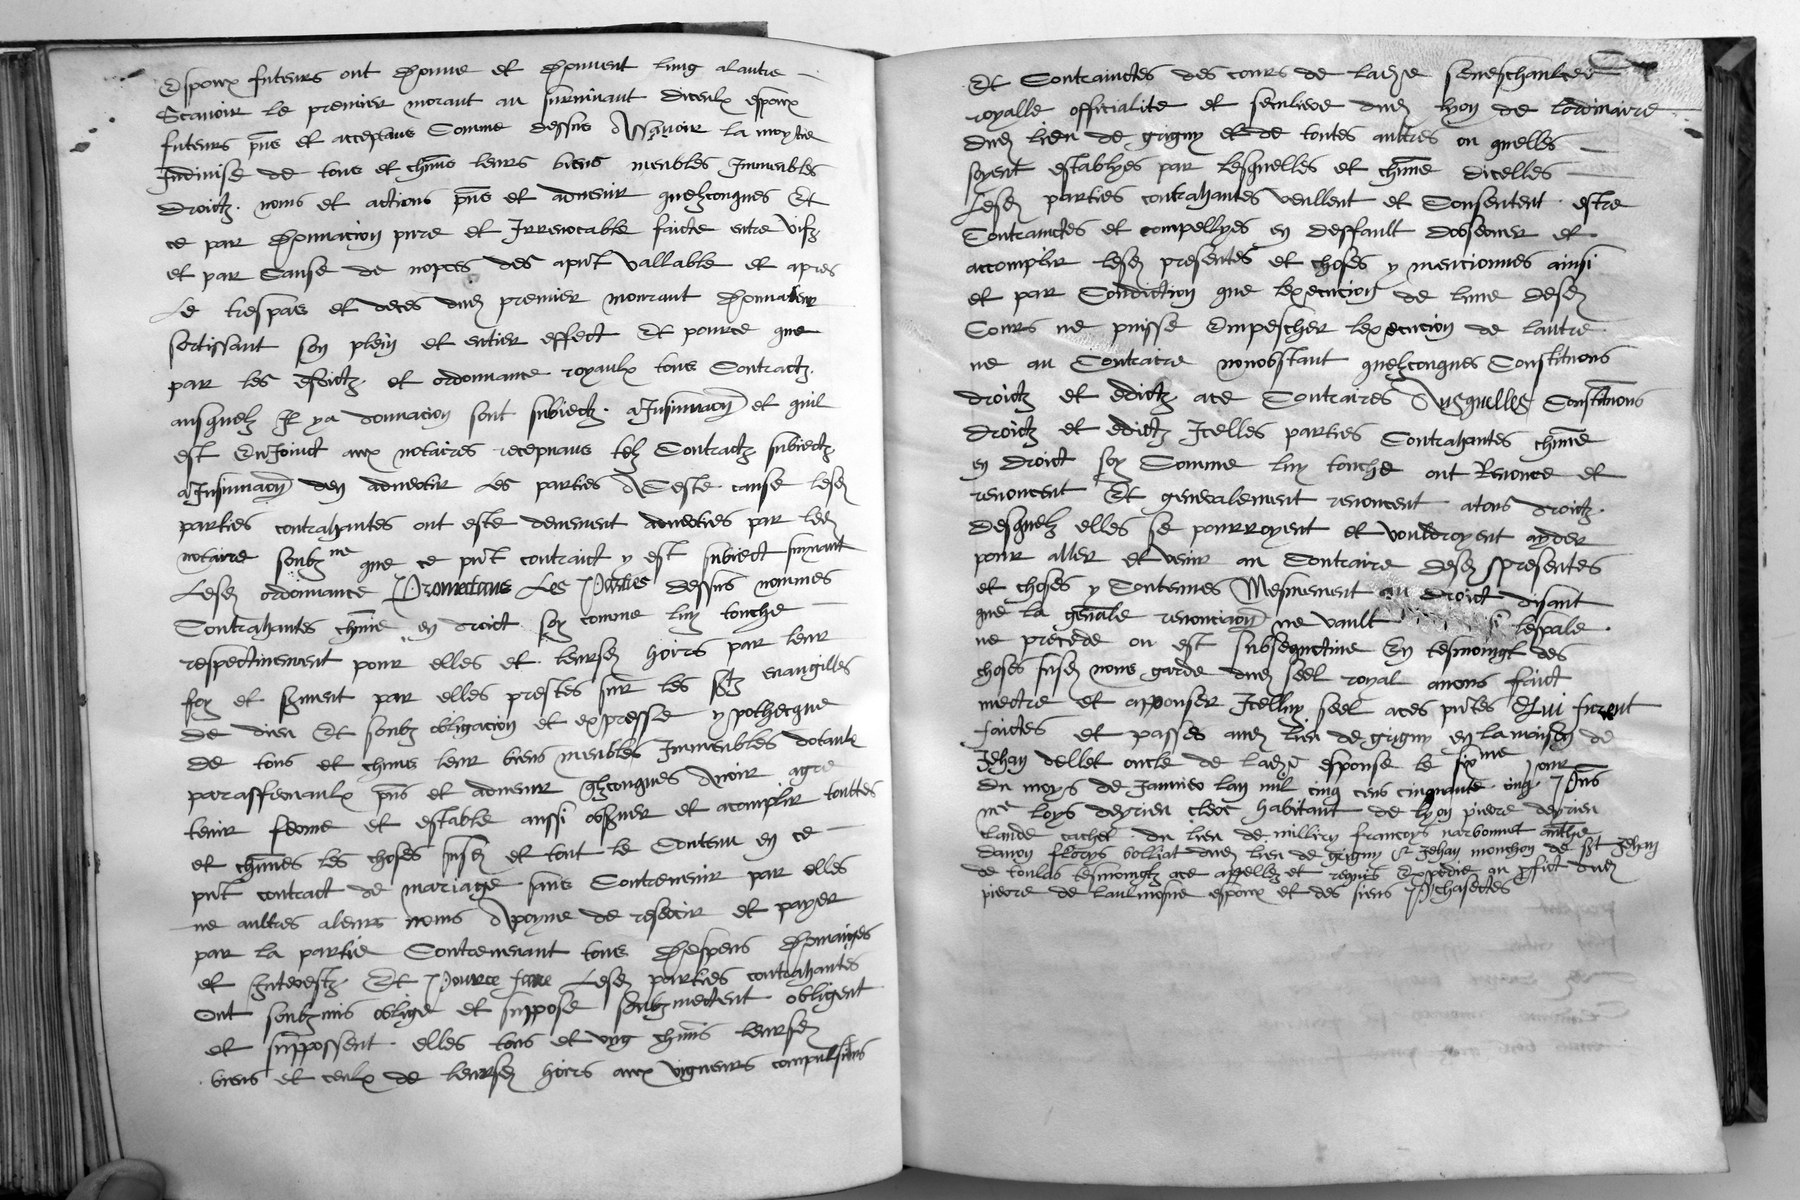 Espoux futeurs ont donne et donnent lung alautre
Scavoir le premier morant au survivant diceulx espoux
futeurs pns et acceptans Comme dessus Assavoir la moytie
Indivise de tous et chuns leurs biens meubles Immeubles
droictz noms et actions pns et advenir quelzconques Et
ce par donnacion pure et Irrevocable faicte entre vifz
et par Cause de nopces des aprnt vallable et apres
Le trespas et deces dud premier mourant donnateur
sortissant son plein et entier effect Et pource que
par les esdictz et ordonnance royaulx tous Contractz
ausquelz Il ya donnacion sont subiectz a Insinuacon et quil
est Enjoinct aux notaires recepvans telz Contractz subiectz
a Insinuacon den advertir Les parties A Ceste cause lesd
parties contrahantes ont este deuement adverties par led
notaire soubzne que ce pnt contraict y est subiect suyvant
Lesd ordonnance Promectans Les Parties dessus nommes
Contrahantes chune en droict soy comme luy touche
respectivement pour elles et leursd hoirs par leur
foy et serment par elles prestes sur les sctz evangilles
de dieu Et soubz obligacion et expresse ypothecque
de tous et chuns leur biens meubles Immeubles dotaulx
paraffrenaulx pns et advenir qlzconques Avoir agre
tenir ferme et estable aussi observer et acomplir touttes
et chunes les choses susd et tout le Contenu en ce
pnt contract de mariage sans Contrevenir par elles
ne aultres aleurs noms A poyne de reffere et payer
par la partie Contrevenant tous despens domaiges
et Interestz Et Pource faire Lesd parties contrahantes
Ont soubzmis oblige et suppose soubzmectent obligent
et suppossent elles tous et ung chuns leursd
biens et ceulx de leursd hoirs aux vigueurs compulsions
Et Contrainctes des cours de lad seneschaulcee
royalle officialite et seculiere dud lyon de lordinaire
dud lieu de grigny et de toutes aultres ou quelles
soyent establyes par lesquelles et chune dicelles
Lesd parties contrahantes veullent et Consentent estre
Contrainctes et compellyes en deffault dobserver et
accomplir lesd presentes et choses y mencionnes ainsi
et par Condiction que lexecucion de lune desd
Cours ne puisse Empescher lexecucion de lautre
ne au Contraire nonobstant quelzconques Constitucons
droictz et edictz ace Contraires Ausquelles Constitucons
droictz et edictz Icelles parties Contrahantes chune
en droict soy Comme luy touche ont Renonce et
renoncent Et generalement renoncent atous droictz
desquelz elles se pourroyent et vouldroyent ayder
pour aller et venir au Contraire desd presentes
et choses y Contenues Mesmement au droict disant
que la genale renonciaon ne vault si lespale
ne precede ou est subsequtive En tesmoingt des
choses susd nous garde dud seel royal avons faict
mectre et apposer Icelluy seel aces pntes Qui furent
faictes et passes aud lieu de grigny en la maison de
Jehan dellet oncle de lad espouse le sixme jour
du moys de Janvier lan mil cinq cens cinquante cinq Pns
me loys deyrieu clerc habitant de lyon pierre deyrieu
claude cachet du lieu de milliry francoys narbonnet anthe
danon florys bolliat dud lieu de grigny et Jehan monchon de st Jehan
de toulas tesmoingtz ace appellez et requis Expedie au pffict dud
pierre de laulmosne espoux et des siens P chasectes